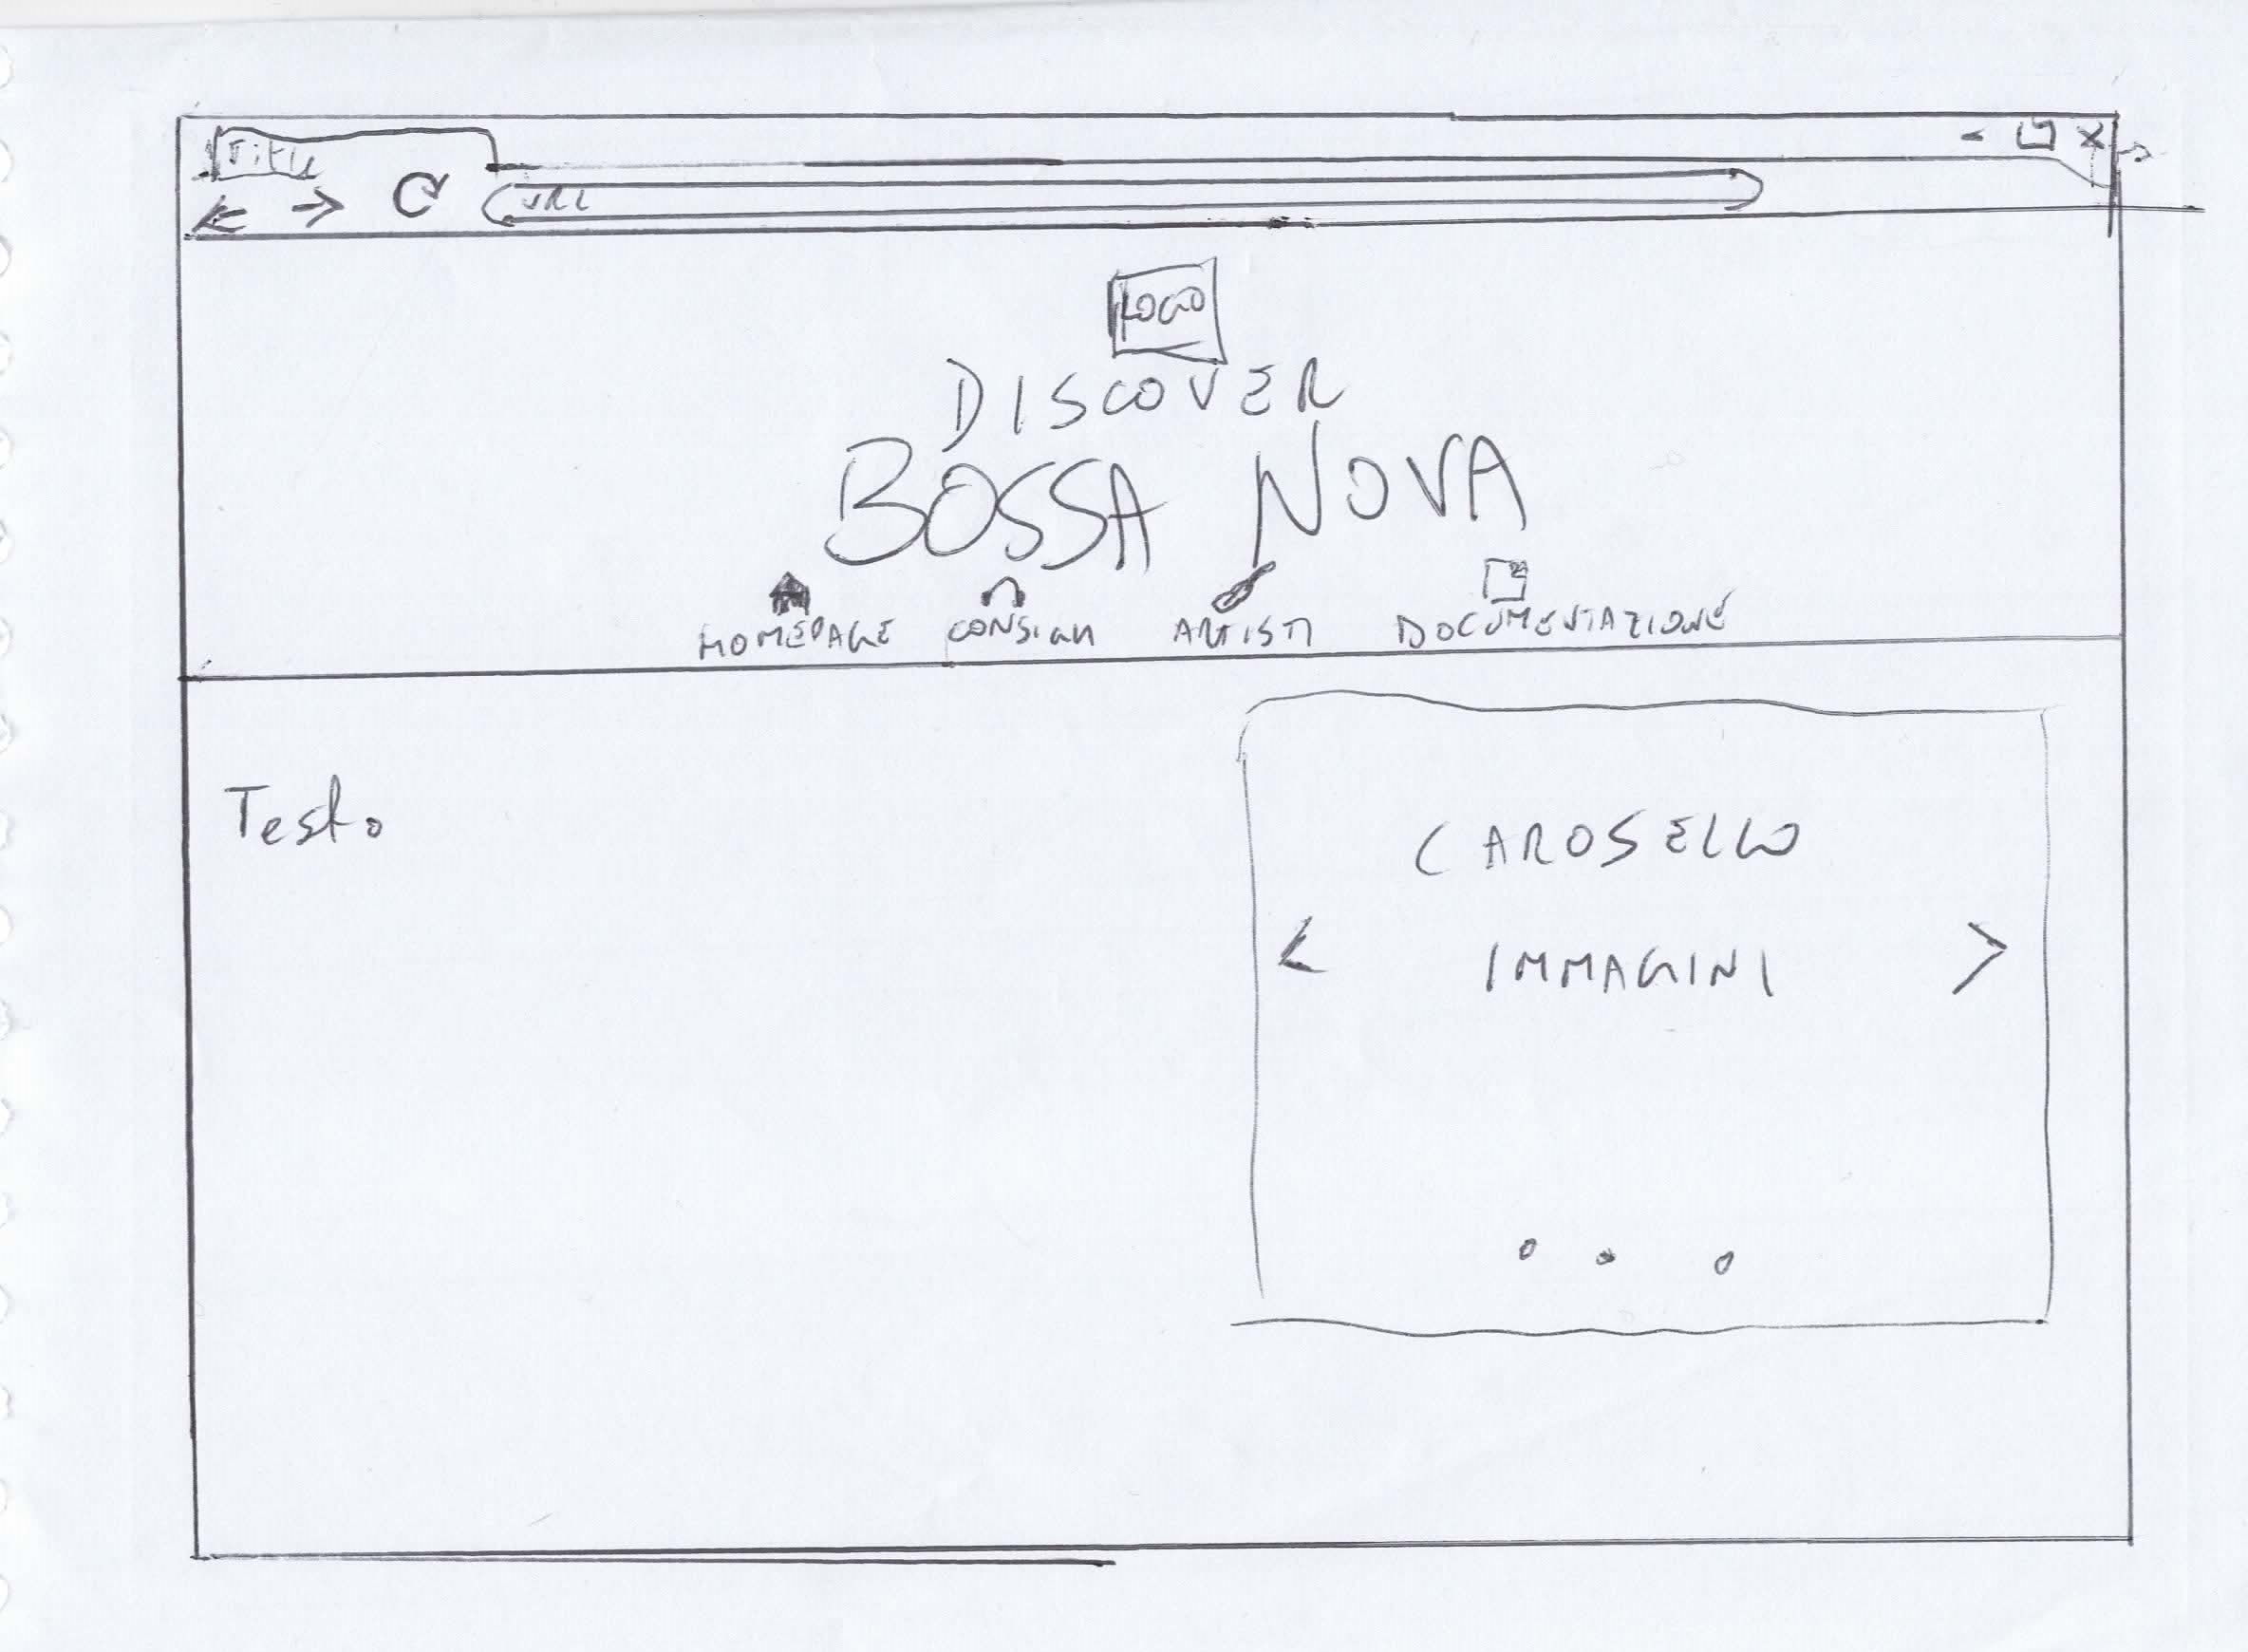 Title
URL
LOGO
DISCOVER
BOSSA NOVA
HOMEPAGE CONSIGLI ARTISTI DOCUMENTAZIONE
Testo
CAROSELLO
< IMMAGINI >